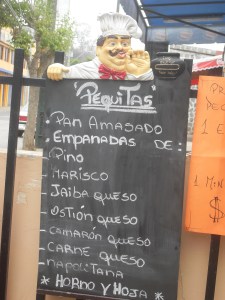 "PequiTas"
. Pan Amasado
. Empanadas de:
- Pino
- Marisco
- Jaiba Queso
- Ostión Queso
- Camarón Queso
- Carne Queso
- Napolitana
* Horno y Hoja *
1 E
1 Min
$